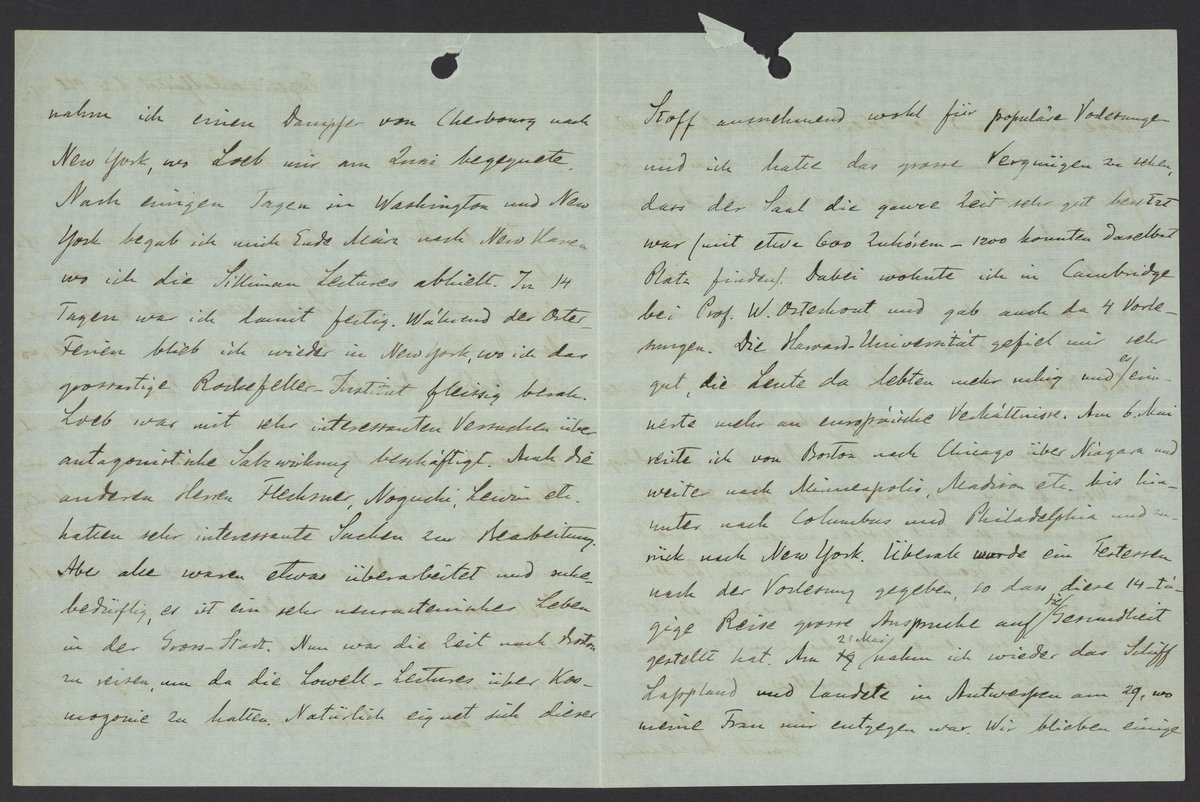 nahm ich einen Dampfer von Cherbourg nach
New York, wo Loeb mir am Quai begegnete.
Nach einigen Tagen in Washington und New
York begab ich mich Ende März nach New Haven
wo ich die Silliman Lectures abhielt. In 14
Tagen war ich damit fertig. Während der Oster-
Ferien blieb ich wieder in New York, wo ich das
grossartige Rockefeller-Institut fleissig besah.
Loeb war mit sehr interessanten Versuchen über
antagonistische Salzwirkung beschäftigt. Auch die
anderen Herren Flechsner, Noguchi, Levin etc.
hatten sehr interessante Sachen zur Bearbeitung.
Aber alle waren etwas überarbeitet und ruhe-
bedürftig, es ist ein sehr neurastenisches Leben
in der Gross-Stadt. Nun war die Zeit nach Boston
zu reisen, um da die Lowell-Lectures über Kos-
mogonie zu halten. Natürlich eignet sich dieser
Stoff ausnehmend wohl für populäre Vorlesungen
und ich hatte das grosse Vergnügen zu sehen,
dass der Saal die ganze Zeit sehr gut besetzt
war (mit etwa 600 Zuhörern – 1200 konnten daselbst
Platz finden). Dabei wohnte ich in Cambridge
bei Prof. W. Osterhout und gab auch da 4 Vorle-
sungen. Die Harvard-Universität gefiel mir sehr
gut, die Leute da lebten mehr ruhig und es erin-
nerte mehr an europäische Verhältnisse. Am 6. Mai
reiste ich von Boston nach Chicago über Niagara und
weiter nach Minneapolis, Madison etc. bis hin-
unter nach Columbus und Philadelphia und zu-
rück nach New York. Überall wurde ein Festessen
nach der Vorlesung gegeben, so dass diese 14-tä-
gige Reise grosse Ansprüche auf die Gesundheit
gestellt hat. Am 21 Mai nahm ich wieder das Schiff
Lappland und landete in Antwerpen am 29, wo
meine Frau mir entgegen war. Wir blieben einige